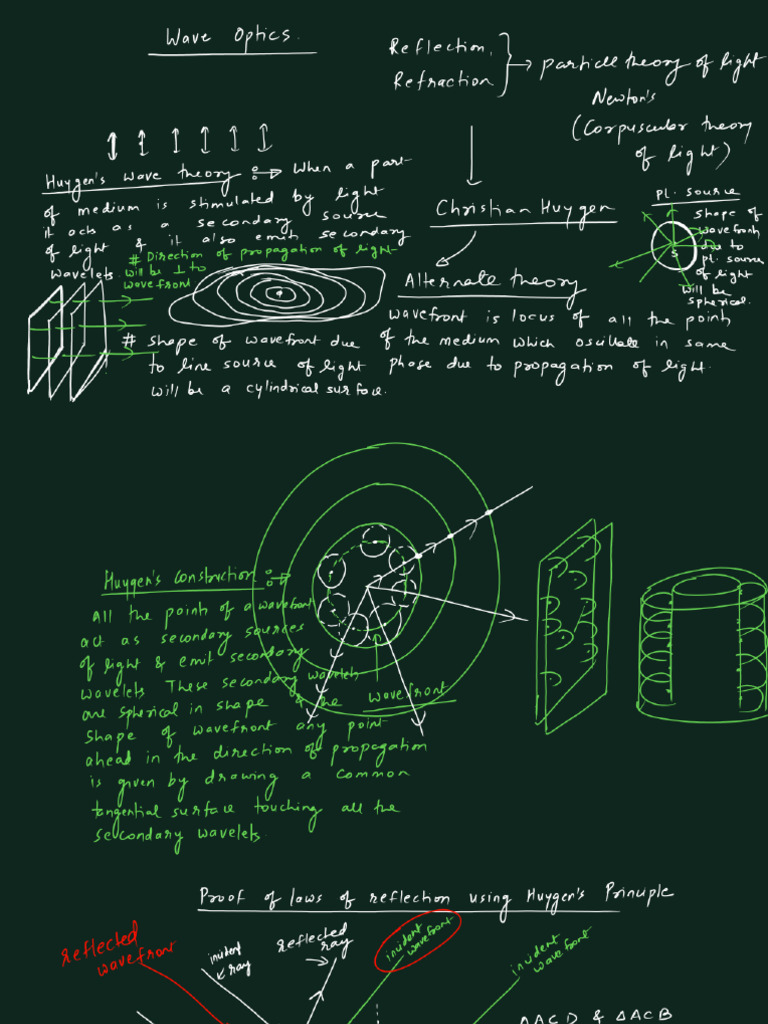 Wave Optics.
Reflection,
Refraction
particle theory of light
Newton's
(Corpuscular theory
of light)
Huygen's wave theory : When a part
of medium is stimulated by light
it acts as a secondary source
of light & it also emit secondary
wavelets.
# Direction of propagation of light
will be ⊥ to
wavefront
Christian Huygen
Alternate theory
pt. source
S
shape of
wavefront
due to
pt. source
of light
will be
spherical.
wavefront is locus of all the points
of the medium which oscillate in same
phase due to propagation of light.
# Shape of wavefront due
to line source of light
will be a cylindrical surface.
Huygen's construction :
All the points of a wavefront
act as secondary sources
of light & emit secondary
wavelets. These secondary wavelets
are spherical in shape & the
shape of wavefront any point
ahead in the direction of propagation
is given by drawing a common
tangential surface touching all the
secondary wavelets.
wavefront
Proof of laws of reflection using Huygen's Principle
reflected
wavefront
incident
ray
reflected
ray
incident
wavefront
incident
wavefront
△ACD & △ACB